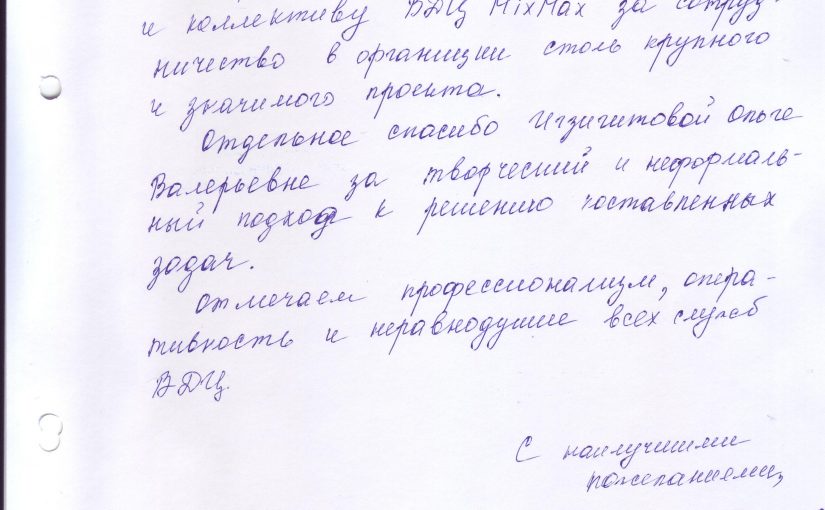 и коллективу ВДЦ MixMax за сотруд-
ничество в организции столь крупного
и значимого проекта.
Отдельное спасибо Игзигитовой Ольге
Валерьевне за творческий и неформаль-
ный подход к решению поставленных
задач.
Отмечаем профессионализм, опера-
тивность и неравнодушие всех служб
ВДЦ.
С наилучшими
пожеланиями,